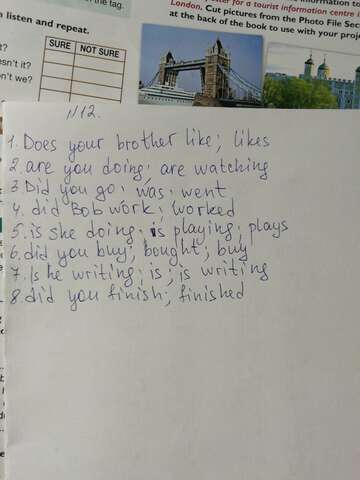 of the tag.
n listen and repeat.
SURE NOT SURE
t?
esn't it?
on't we?
ster for a tourist information centre i
London. Cut pictures from the Photo File Sec
at the back of the book to use with your proj
N12.
1. Does your brother like; likes
2. are you doing; are watching
3 Did you go; was; went
4. did Bob work; worked
5. is she doing; is playing; plays
6. did you buy; bought; buy
7. Is he writing; is; is writing
8. did you finish; finished